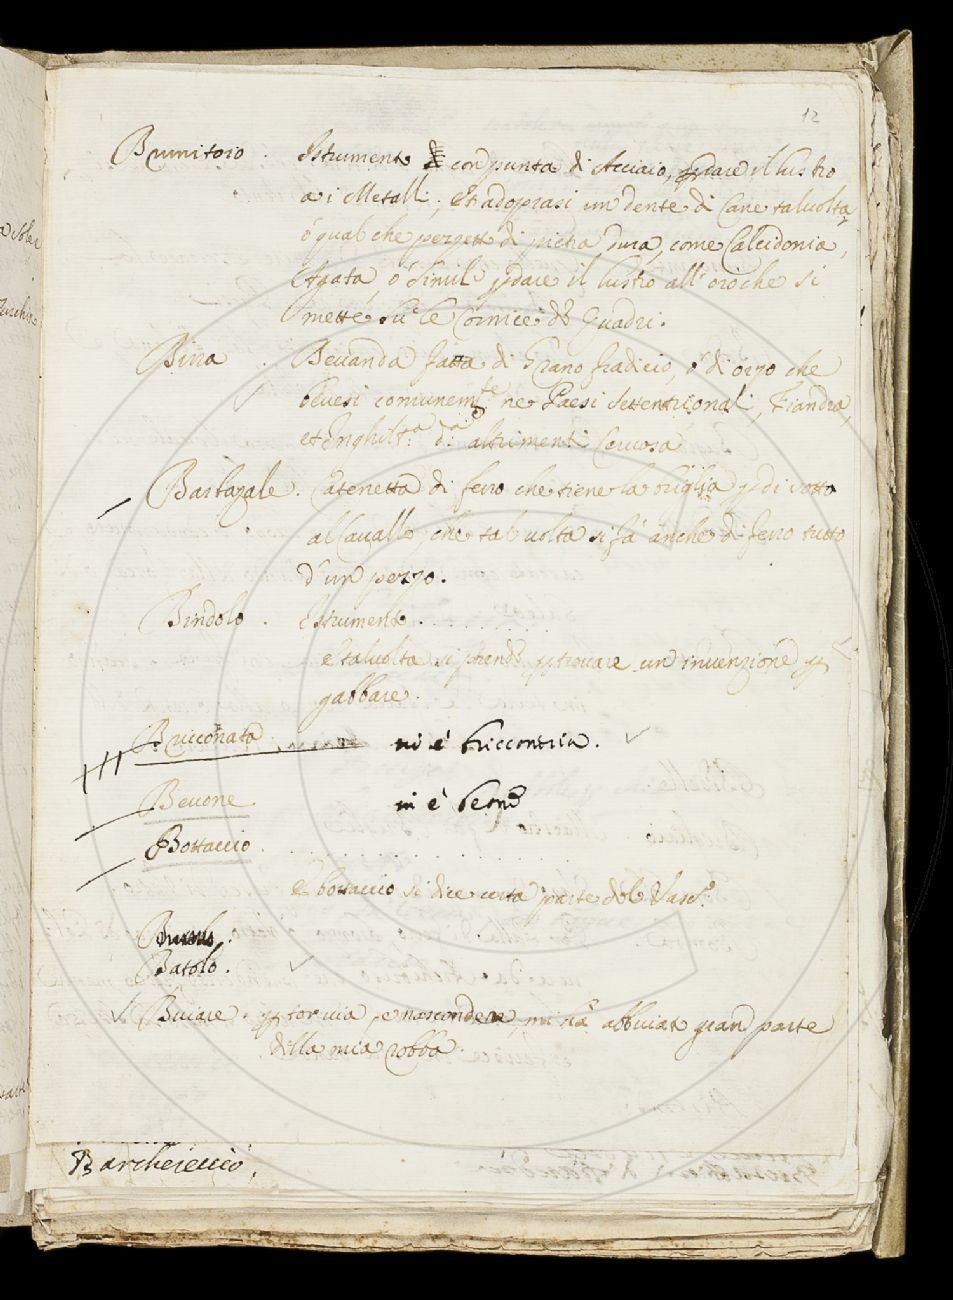 12
Brunitoio. Istrumento con punta di Acciaio, p dare il lustro
a i Metalli, et adoprasi un dente di Cane talvolta
ò qualche pezzetto di pietra dura, come Calcidonia,
Agata ò simili p dare il lustro all'oro che si
mette su le Cornici de Quadri.
Birra. Bevanda fatta di Grano fradicio, ò d'orzo che
bevesi comunemte ne Paesi Settentrionali, Fiandra,
et Inghilta da altrimenti Cervosa
Barbazale. Catenetta di ferro che tiene la briglia p di sotto
al Cavallo, che tal volta si fà anche di ferro tutto
d'un pezzo.
Bindolo. Istrumento.
e talvolta si prende p trovare un invenzione p
gabbare.
Bricconata. ni è bricconeria.
Bevone ni è
Bottaccio.
E bottaccio si dice certa parte del
Batolo.
Buiare. p tor via, e nascondere mi hà abbuiato gran parte
della mia robba.
Barchereccio.